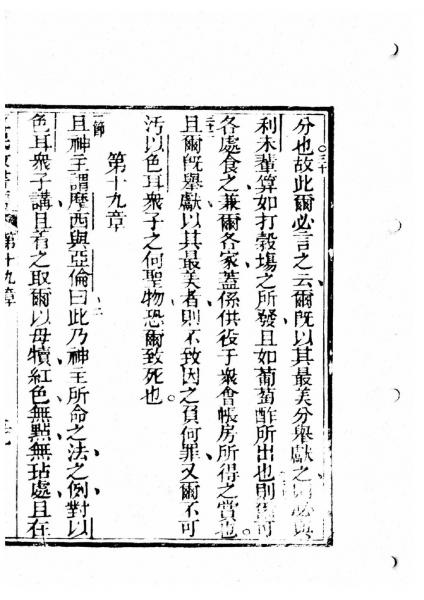 三十
分也故此爾必言之云爾既以其最美分舉獻之則必與
利未輩算如打穀塲之所發且如葡萄醡所出也則爾可
各處食之兼爾各家蓋係供役于衆會帳房所得之賞也
且爾既舉獻以其最美者則不致因之負何罪又爾不可
汚以色耳衆子之何聖物恐爾致死也
第十九章
節
且神主謂摩西與亞倫曰此乃神主所命之法之例對以
二
色耳衆子講且着之取爾以母犢紅色無點無玷處且在
第十九章